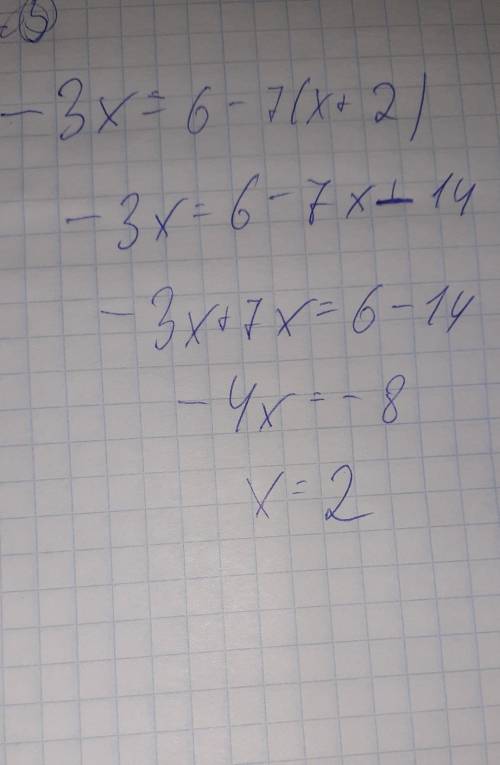 5
-3x = 6 - 7(x + 2)
-3x = 6 - 7x - 14
-3x + 7x = 6 - 14
-4x = -8
x = 2